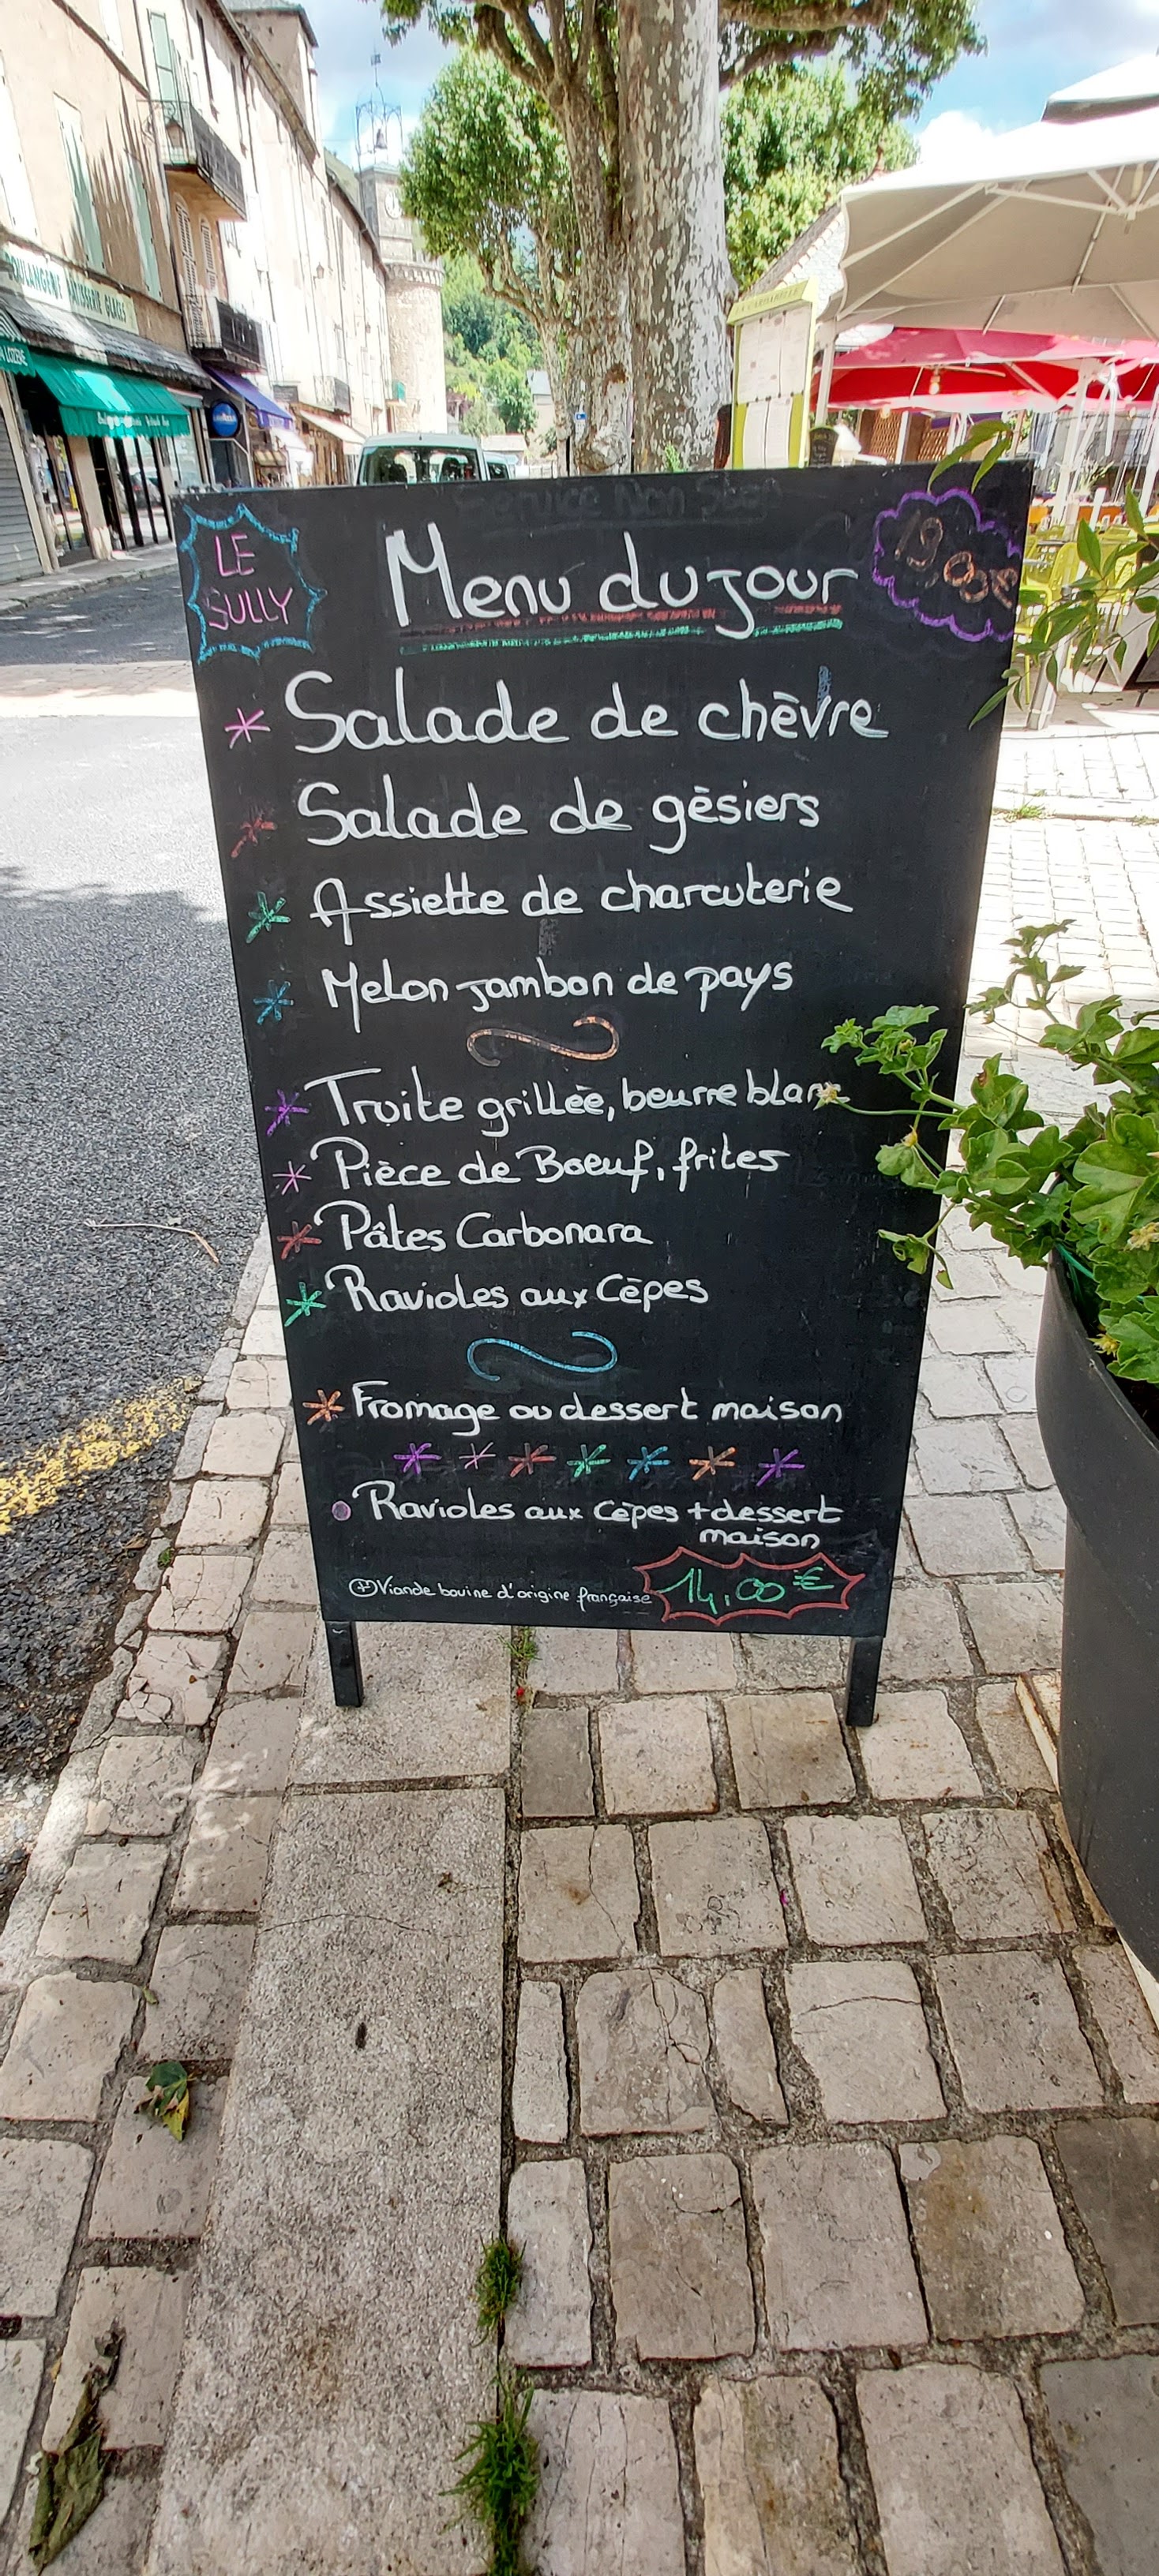 BOULANGERIE PATISSERIE GLACES
Service Non Stop
LE
SULLY
Menu du jour
19,00€
* Salade de chèvre
* Salade de gèsiers
* Assiette de charcuterie
* Melon jambon de pays
* Truite grillèe, beurre blanc
* Pièce de Boeuf, frites
* Pâtes Carbonara
* Ravioles aux Cèpes
* Fromage ou dessert maison
* * * * * * *
Ravioles aux Cèpes + dessert
maison
(+) Viande bovine d'origine française
14,00 €